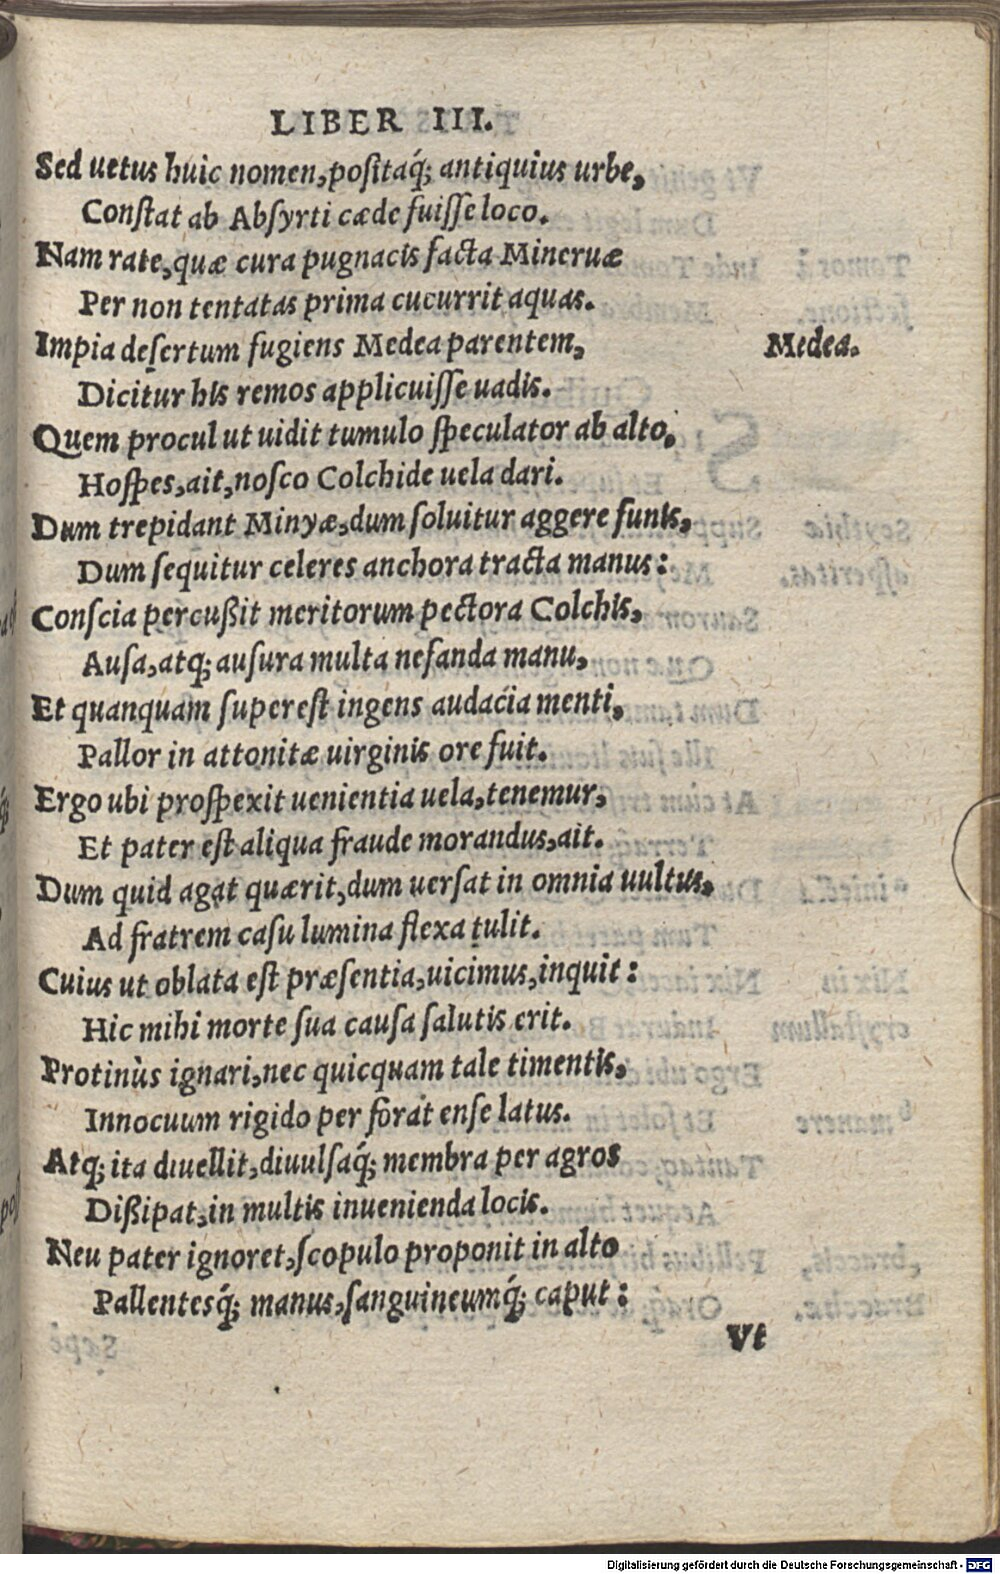 LIBER III.
Sed uetus huic nomen, positaq́; antiquius urbe,
Constat ab Absyrti cæde fuisse loco.
Nam rate, quæ cura pugnacis facta Mineruæ
Per non tentatas prima cucurrit aquas.
Impia desertum fugiens Medea parentem,
Medea.
Dicitur his remos applicuisse uadis.
Quem procul ut uidit tumulo speculator ab alto,
Hospes, ait, nosco Colchide uela dari.
Dum trepidant Minyæ, dum soluitur aggere funis,
Dum sequitur celeres anchora tracta manus:
Conscia percußit meritorum pectora Colchis,
Ausa, atq; ausura multa nefanda manu,
Et quanquam superest ingens audacia menti,
Pallor in attonitæ uirginis ore fuit.
Ergo ubi prospexit uenientia uela, tenemur,
Et pater est aliqua fraude morandus, ait.
Dum quid agat quærit, dum uersat in omnia uultus,
Ad fratrem casu lumina flexa tulit.
Cuius ut oblata est præsentia, uicimus, inquit:
Hic mihi morte sua causa salutis erit.
Protinùs ignari, nec quicquam tale timentis,
Innocuum rigido per forat ense latus.
Atq; ita diuellit, diuulsaq́; membra per agros
Dißipat, in multis inuenienda locis.
Neu pater ignoret, scopulo proponit in alto
Pallentesq́; manus, sanguineumq́; caput:
Vt
Digitalisierung gefördert durch die Deutsche Forschungsgemeinschaft - DFG